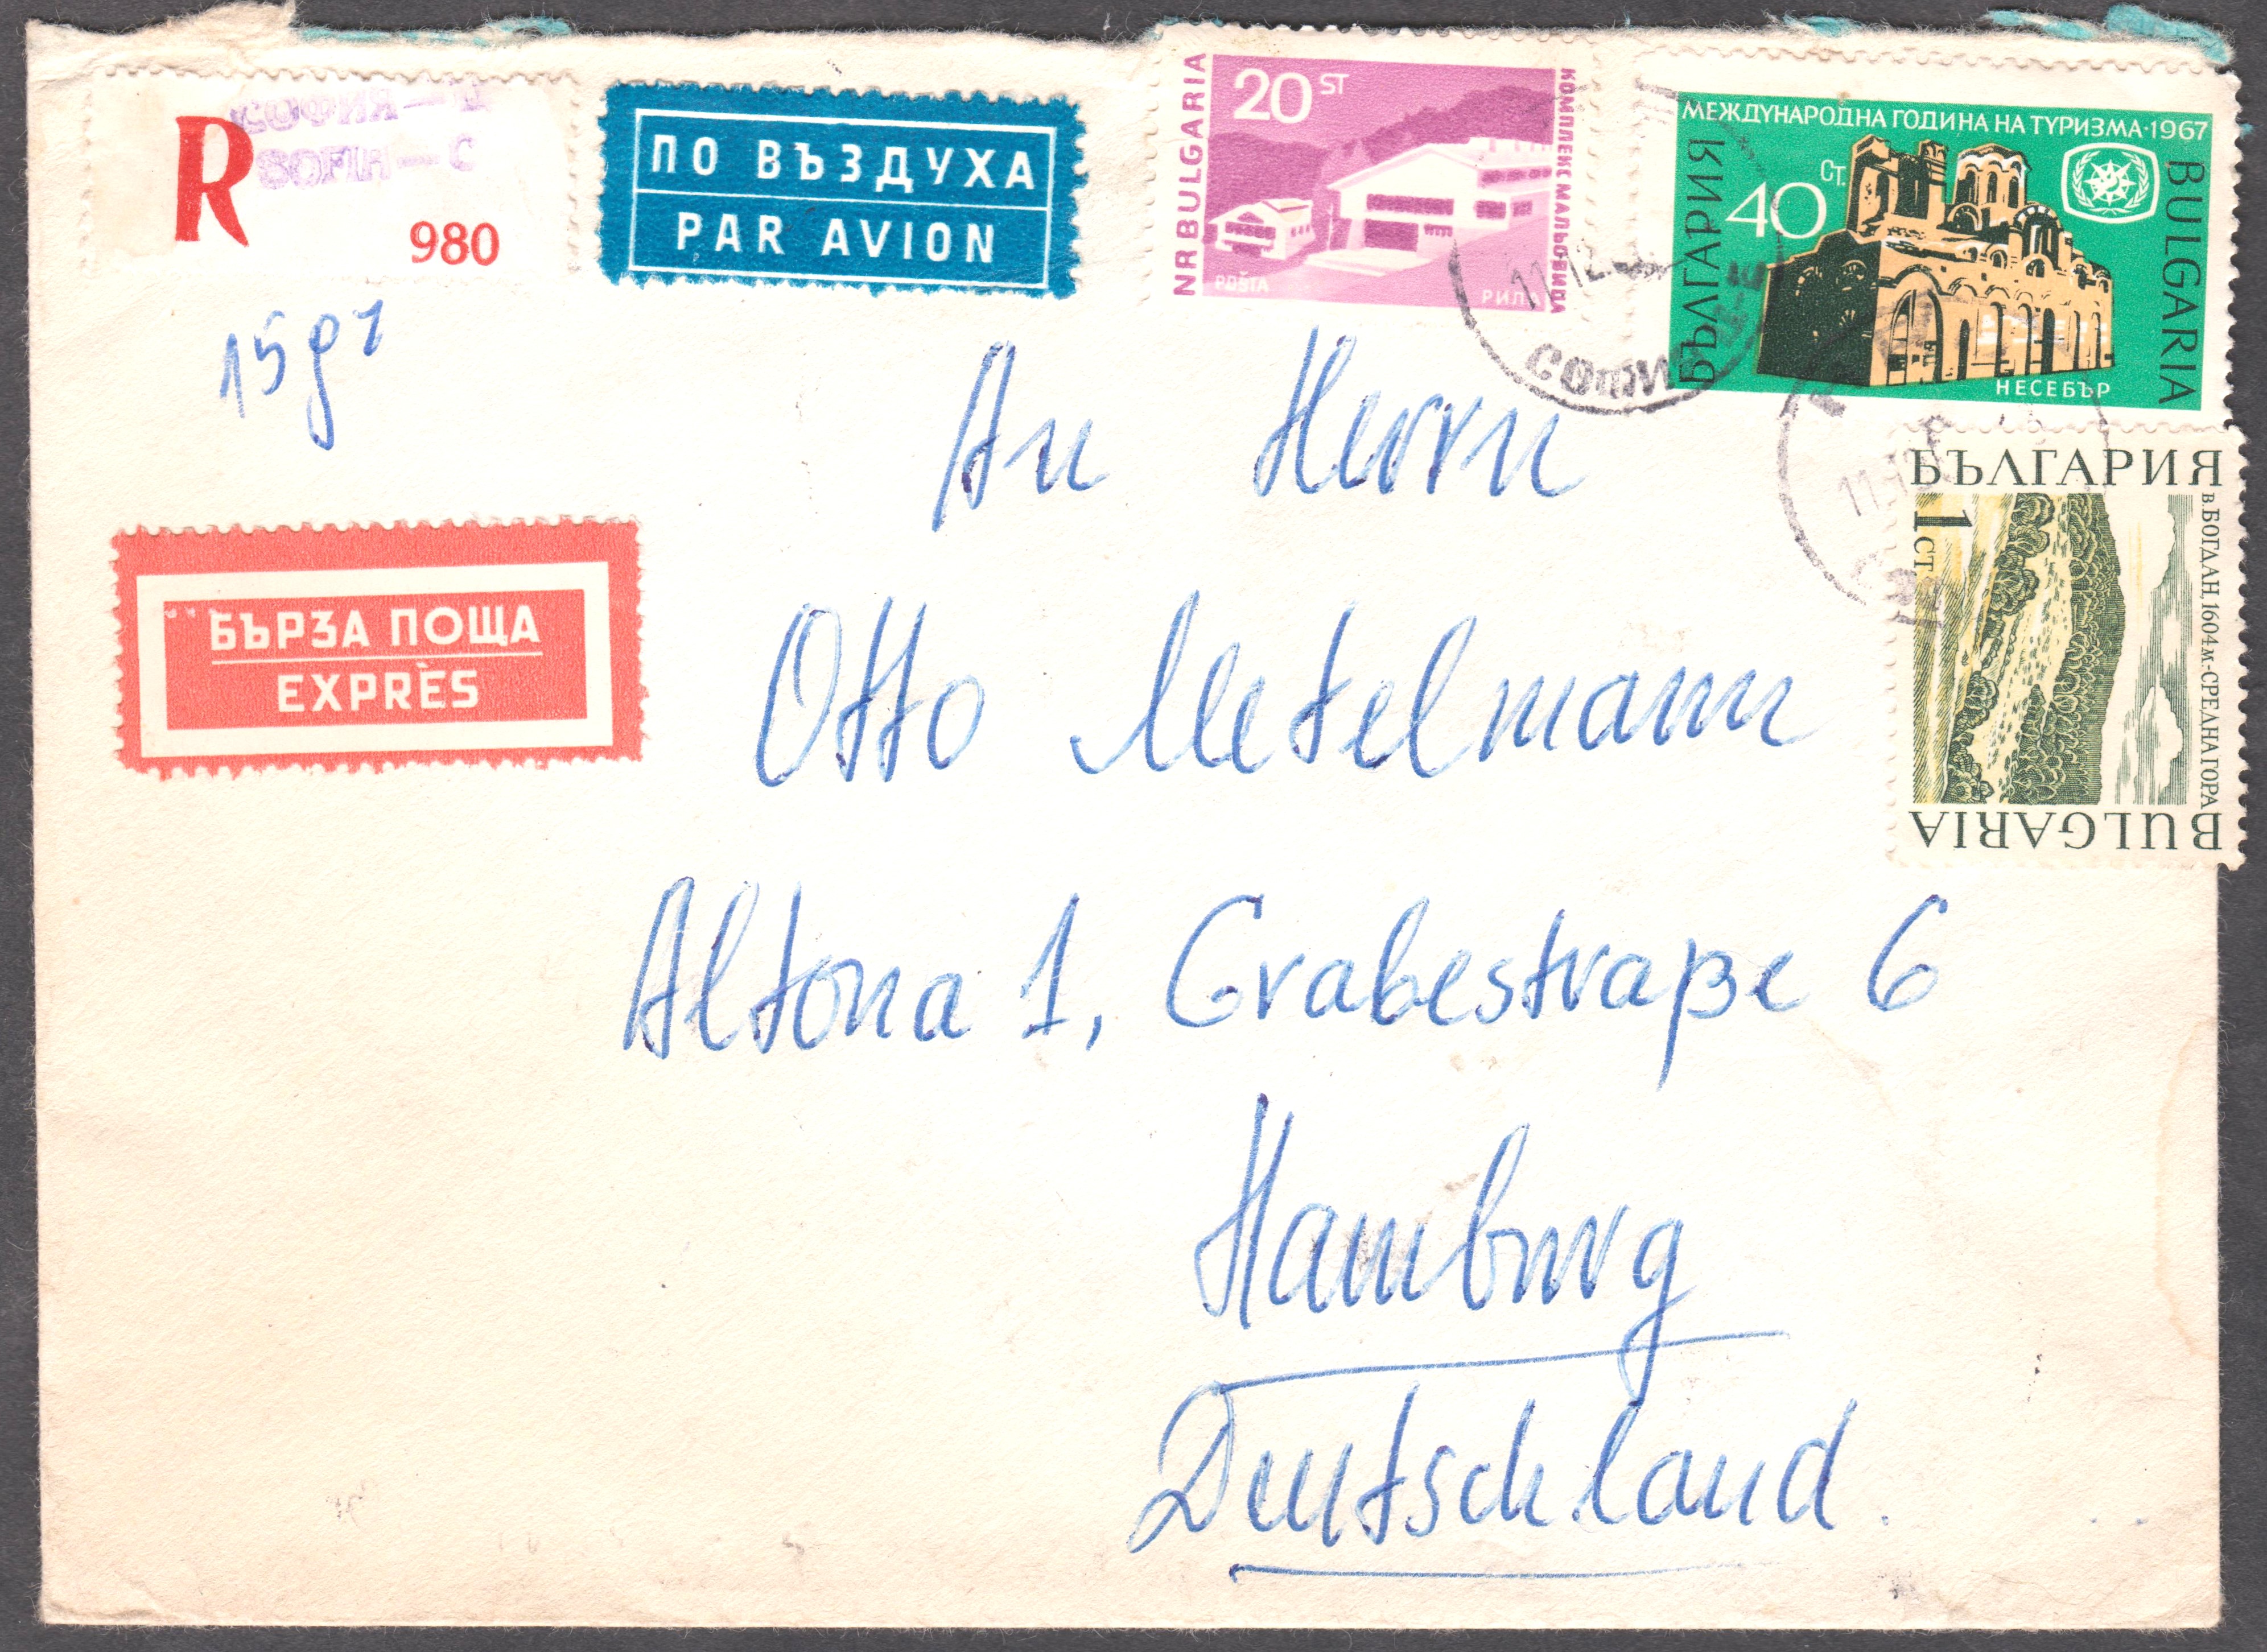 СОФИЯ — Ц
SOFIA — C
R
980
ПО ВЪЗДУХА
PAR AVION
NR BULGARIA
20 ST
КОМПЛЕКС МАЛЬОВИЦА
POŠTA
РИЛА
МЕЖДУНАРОДНА ГОДИНА НА ТУРИЗМА · 1967
БЪЛГАРИЯ
40 СТ.
BULGARIA
НЕСЕБЪР
11.12
СОФИЯ
БЪЛГАРИЯ
1 СТ
в. БОГДАН, 1604 м.-СРЕДНА ГОРА
BULGARIA
15 gr
БЪРЗА ПОЩА
EXPRÈS
An Herrn
Otto Metelmann
Altona 1, Grabestraße 6
Hamburg
Deutschland.